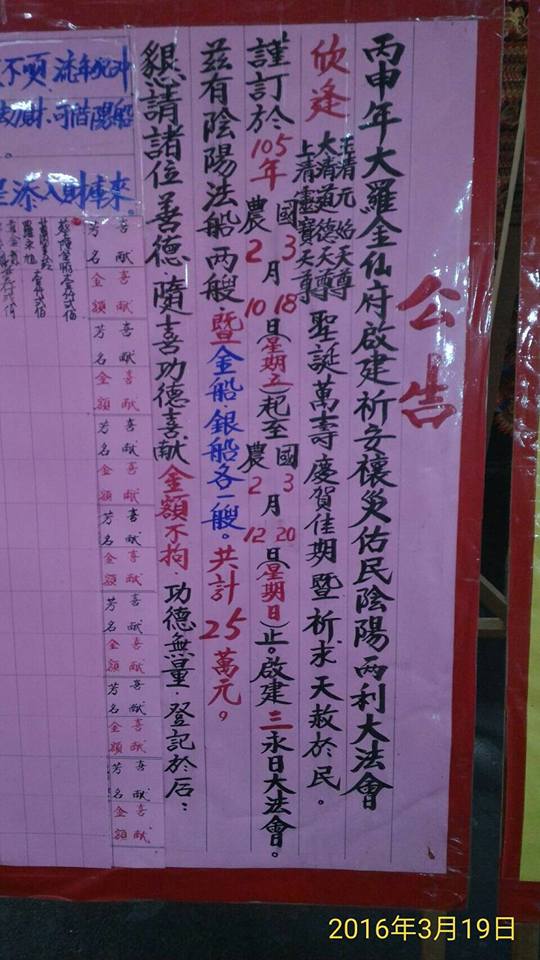 公告
丙申年大羅金仙府啟建祈安禳災佑民陰陽兩利大法會
欣逢
玉清元始天尊
大清道德天尊
上清靈寶天尊
聖誕萬壽慶賀佳期暨祈求天赦於民。
謹訂於105年 國3 農2 月 18 10 日(星期五)起至 國3 農2 月 20 12 日(星期日)止。啟建三永日大法會。
茲有陰陽法船兩艘.暨金船銀船各一艘。共計25萬元。
懇請諸位善德.隨喜功德喜献金額不拘.功德無量.登記於后:
喜献芳名
喜献金額
喜献芳名
喜献金額
喜献芳名
喜献金額
喜献芳名
喜献金額
喜献芳名
喜献金額
喜献芳名
喜献金額
喜献芳名
喜献金額
不順.流年犯冲
劫財.可借陽船
。
添入財庫來。
2016年3月19日